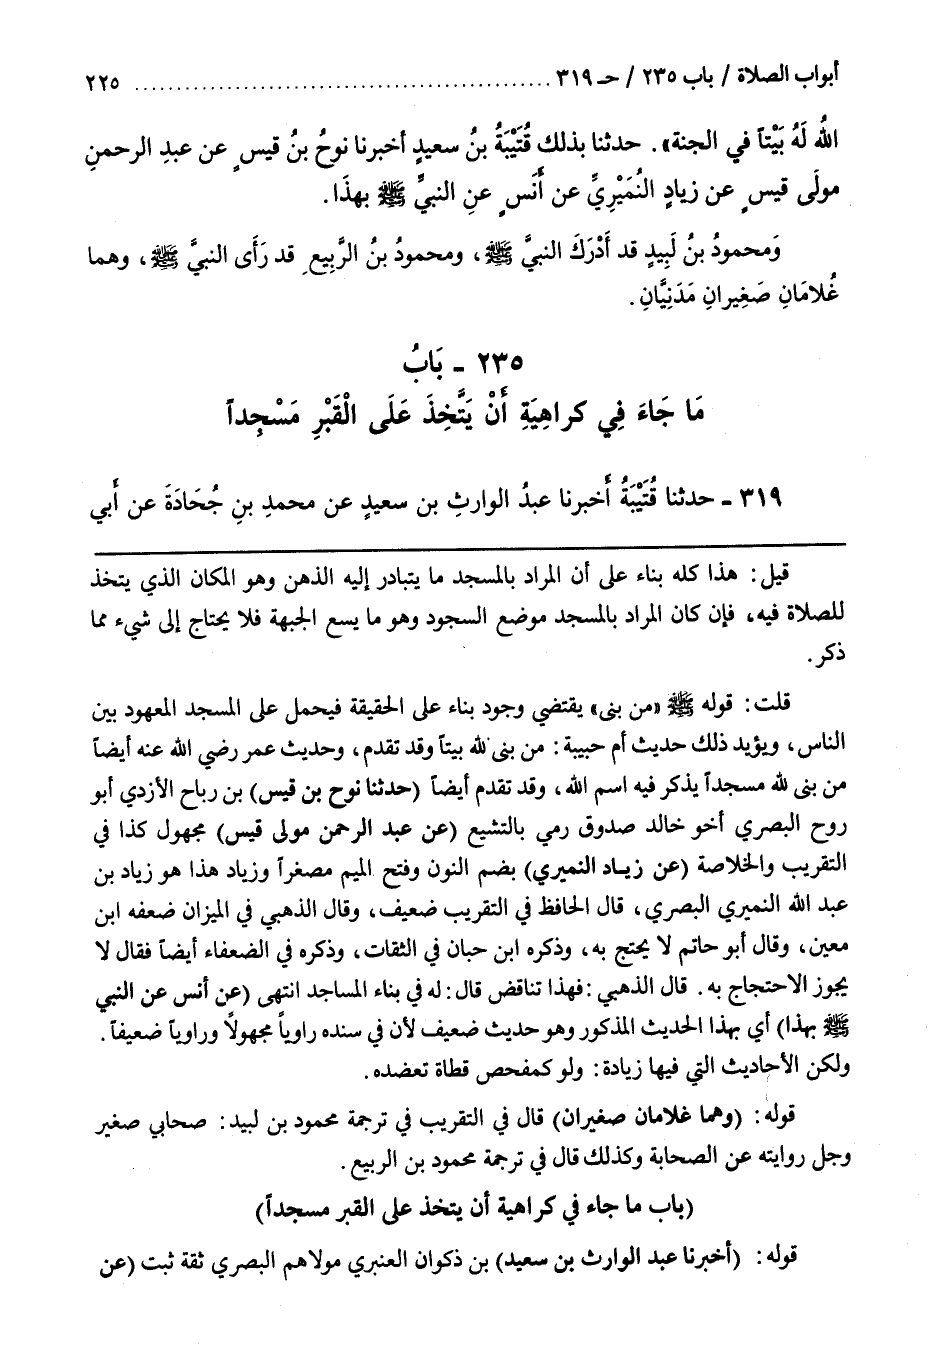 أبواب الصلاة / باب ٢٣٥ / حـ ٣١٩ .................................................. ٢٢٥
اللهُ لَهُ بَيْتاً في الجنة». حدثنا بذلك قُتَيْبَةُ بنُ سعيدٍ أخبرنا نوحُ بنُ قيسٍ عن عبدِ الرحمنِ
مولَى قيسٍ عن زيادٍ النُمَيْرِيِّ عن أَنَسٍ عنِ النبيِّ ﷺ بهذَا.
وَمحمودُ بنُ لَبِيدٍ قد أَدْرَكَ النبيَّ ﷺ، ومحمودُ بنُ الرَّبِيعِ قد رَأَى النبيَّ ﷺ، وهما
غُلامَانِ صَغِيرانِ مَدَنِيَّانِ.
٢٣٥ ـ بَابُ
مَا جَاءَ فِي كراهِيَةِ أَنْ يَتَّخِذَ عَلَى الْقَبْرِ مَسْجِداً
٣١٩ ـ حدثنا قُتَيْبَةُ أَخبرنا عبدُ الوارثِ بن سعيدٍ عن محمدِ بنِ جُحَادَةَ عن أَبي
قيل: هذا كله بناء على أن المراد بالمسجد ما يتبادر إليه الذهن وهو المكان الذي يتخذ
للصلاة فيه، فإن كان المراد بالمسجد موضع السجود وهو ما يسع الجبهة فلا يحتاج إلى شيء مما
ذكر.
قلت: قوله ﷺ «من بنى» يقتضي وجود بناء على الحقيقة فيحمل على المسجد المعهود بين
الناس، ويؤيد ذلك حديث أم حبيبة: من بنى لله بيتاً وقد تقدم، وحديث عمر رضي الله عنه أيضاً
من بنى لله مسجداً يذكر فيه اسم الله، وقد تقدم أيضاً (حدثنا نوح بن قيس) بن رباح الأزدي أبو
روح البصري أخو خالد صدوق رمي بالتشيع (عن عبد الرحمن مولى قيس) مجهول كذا في
التقريب والخلاصة (عن زيـاد النميري) بضم النون وفتح الميم مصغراً وزياد هذا هو زياد بن
عبد الله النميري البصري، قال الحافظ في التقريب ضعيف، وقال الذهبي في الميزان ضعفه ابن
معين، وقال أبو حاتم لا يحتج به، وذكره ابن حبان في الثقات، وذكره في الضعفاء أيضاً فقال لا
يجوز الاحتجاج به. قال الذهبي: فهذا تناقض قال: له في بناء المساجد انتهى (عن أنس عن النبي
ﷺ بهذا) أي بهذا الحديث المذكور وهو حديث ضعيف لأن في سنده راوياً مجهولاً وراوياً ضعيفاً.
ولكن الأحاديث التي فيها زيادة: ولو كمفحص قطاة تعضده.
قوله: (وهما غلامان صغيران) قال في التقريب في ترجمة محمود بن لبيد: صحابي صغير
وجل روايته عن الصحابة وكذلك قال في ترجمة محمود بن الربيع.
(باب ما جاء في كراهية أن يتخذ على القبر مسجداً)
قوله: (أخبرنا عبد الوارث بن سعيد) بن ذكوان العنبري مولاهم البصري ثقة ثبت (عن